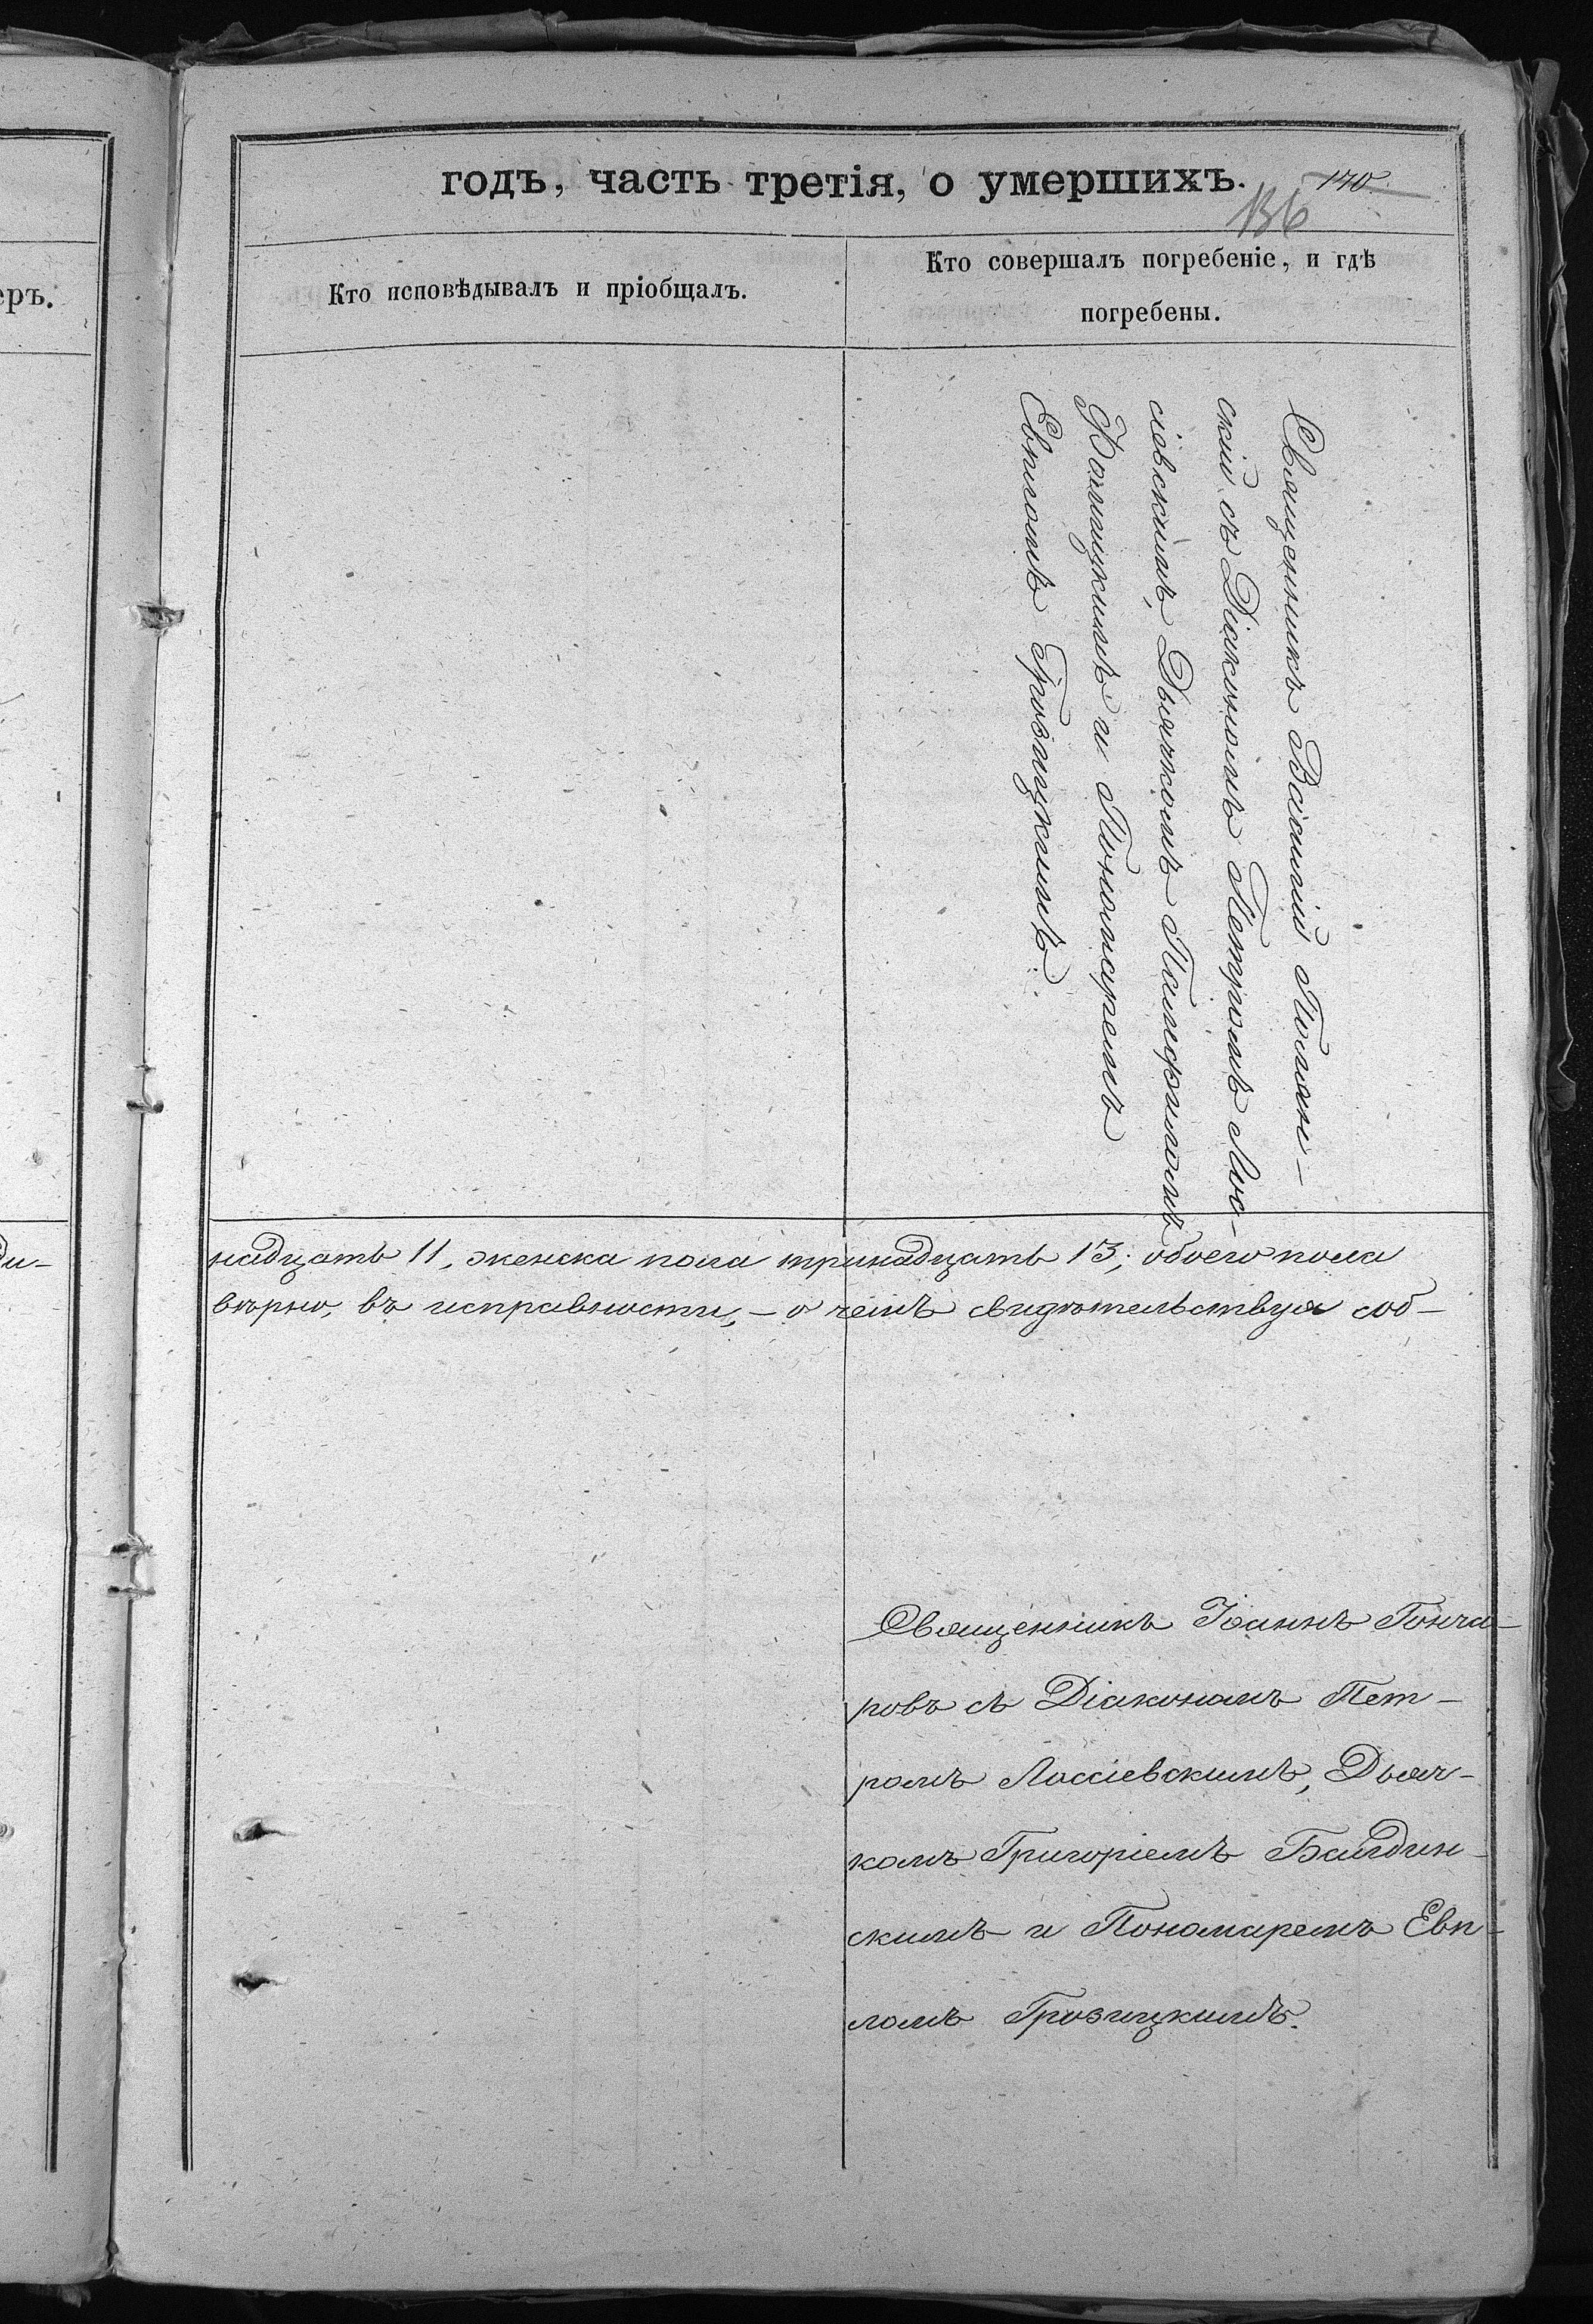 еръ.
ди-
годъ, часть третія, о умершихъ.
140
136
Кто исповѣдывалъ и пріобщалъ.
Кто совершалъ погребеніе, и гдѣ
погребены.
Священникъ Василій Полян-
скій съ Діакономъ Петромъ Лос-
сіевскимъ, Дьячкомъ Памфиломъ
и Пономаремъ
Евпломъ Грозицкимъ.
надцать 11, женска пола тринадцать 13, обоего пола
вѣрно, въ исправности, - о чемъ свидѣтельствуя соб-
Священникъ Іоаннъ Гонча-
ровъ съ Діакономъ Пет-
ромъ Лоссіевскимъ, Дьяч-
комъ Григоріемъ
скимъ и Пономаремъ Евп-
ломъ Грозицкимъ.